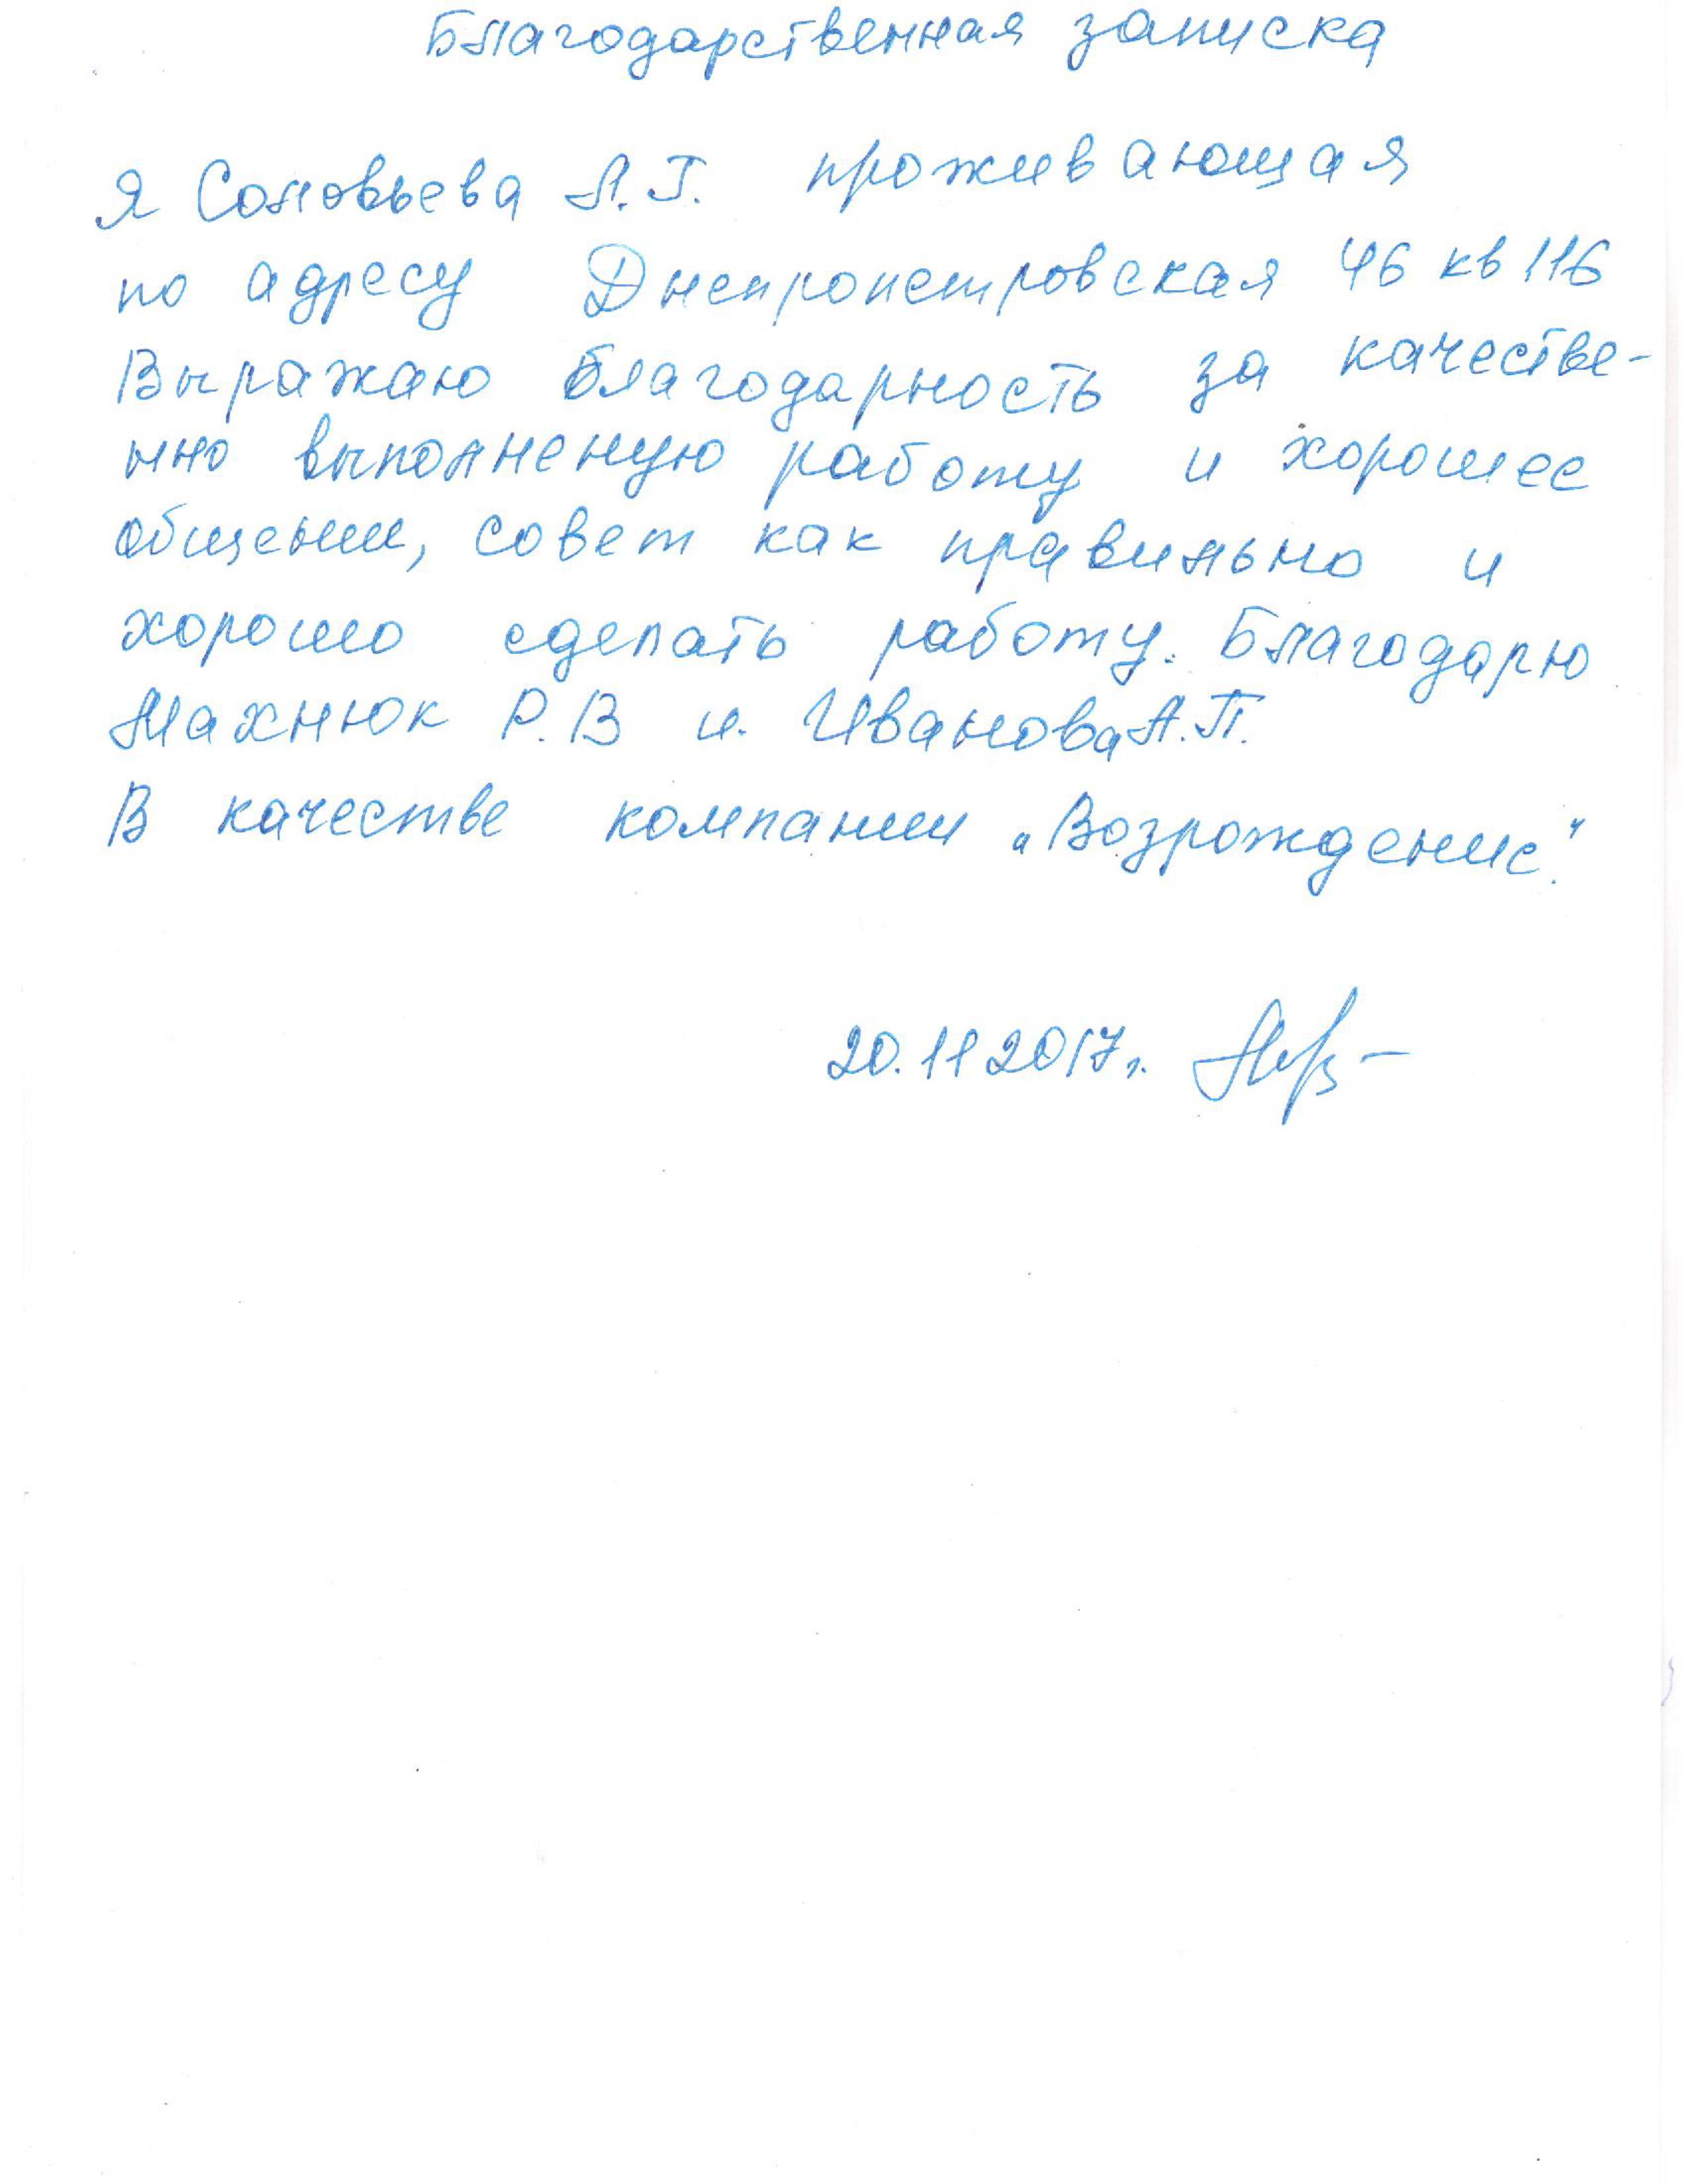 Благодарственная записка
Я Соловьева Л.Г. проживающая
по адресу Днепропетровская 46 кв 116
Выражаю благодарность за качестве-
нно выполненую работу и хорошее
общении, совет как правильно и
хорошо сделать работу. Благодарю
Махнюк Р.В и. Иванова А.П.
В качестве компании „Возрождение".
20.11 2017г.